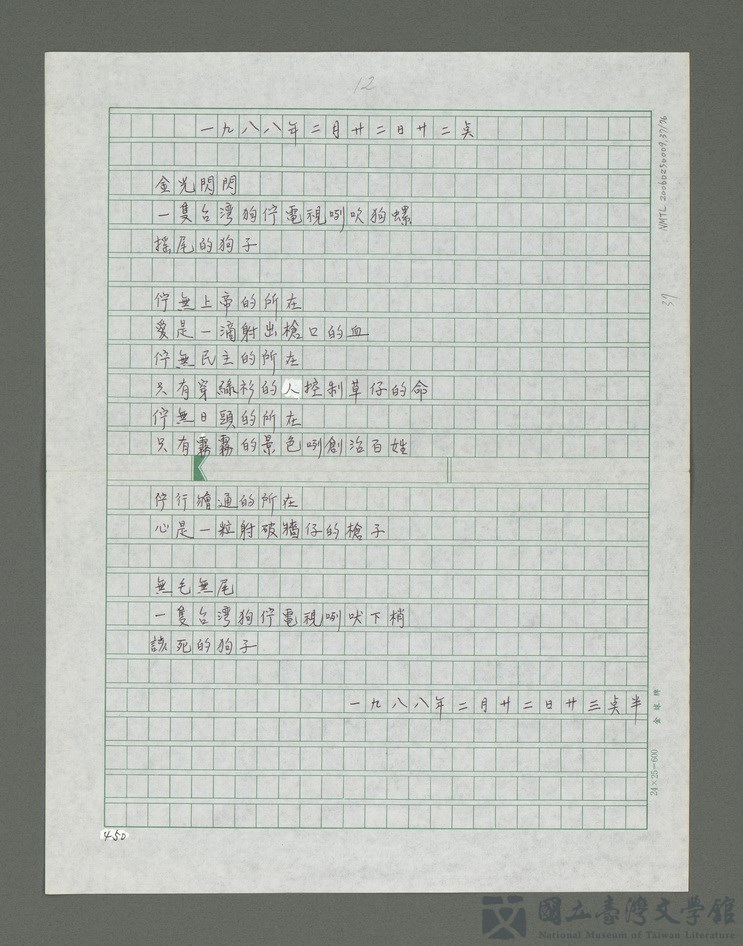 12
一九八八年二月廿二日廿二奌
金光閃閃
一隻台湾狗佇電視咧吹狗螺
搖尾的狗子
佇無上帝的所在
愛是一滴射出槍口的血
佇無民主的所在
只有穿絲衫的人控制草仔的命
佇無日頭的所在
只有霧霧的景色咧創治百姓
佇行獪通的所在
心是一粒射破牆仔的槍子
無毛無尾
一隻台湾狗佇電視咧吠下梢
該死的狗子
一九八八年二月廿二日廿三奌半
NMTL 20060250009,37/76
37
金球牌
24×25=600
450
國立臺灣文學館
National Museum of Taiwan Literature